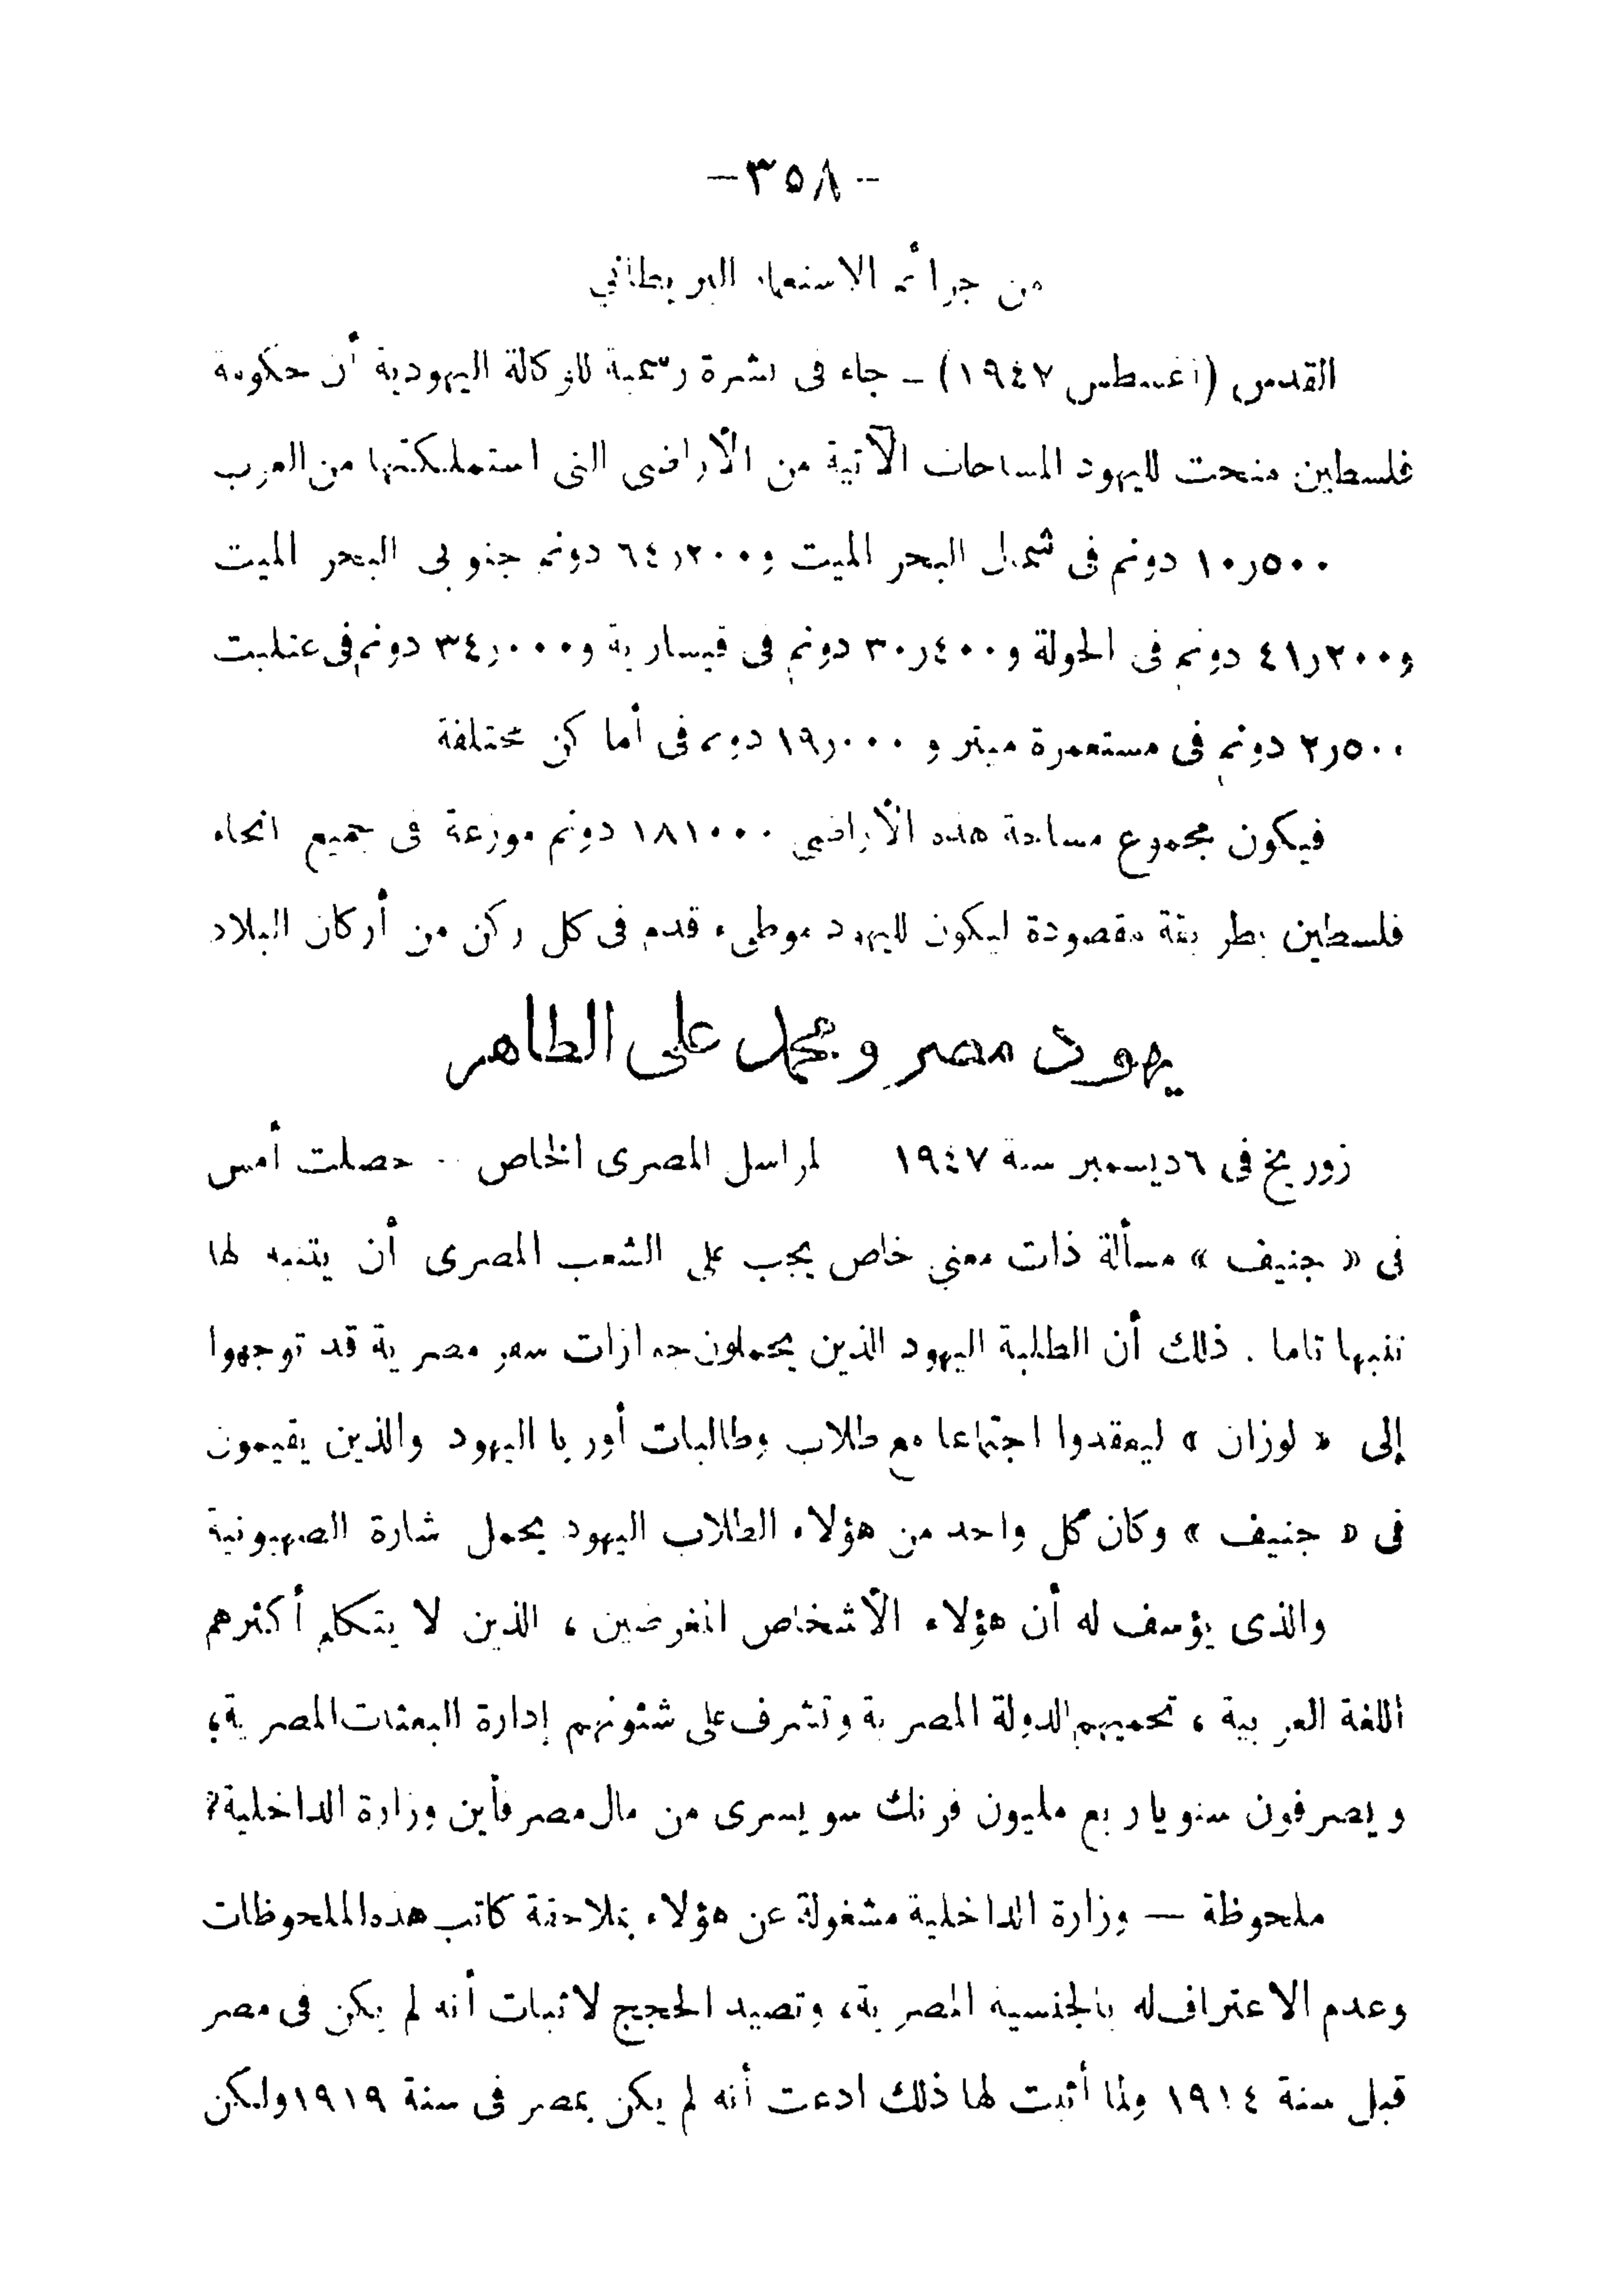 -٣٥٨-
من جرائم الاستعمار البريطاني
القدس (أغسطس ١٩٤٧) - جاء فى نشرة رسمية للوكالة اليهودية أن حكومة
فلسطين منحت لليهود المساحات الآتية من الأراضى التى استملكتها من العرب
١٠ر٥٠٠ دونم فى شمال البحر الميت و٦٤ر٢٠٠ دونم جنوبى البحر الميت
و٤١ر٢٠٠ دونم فى الحولة و٣٠ر٤٠٠ دونم فى قيسارية و٣٤ر٠٠٠ دونم فى عتليت
٢ر٥٠٠ دونم فى مستعمرة ميتر و ١٩ر٠٠٠ دونم فى أماكن مختلفة
فيكون مجموع مساحة هذه الأراضى ١٨١٠٠٠ دونم موزعة فى جميع انحاء
فلسطين بطريقة مقصودة ليكون لليهود موطىء قدم فى كل ركن من أركان البلاد
يهود مصر ومحمد على الطاهر
زوريخ فى ٦ ديسمبر سنة ١٩٤٧ لمراسل المصرى الخاص - حصلت أمس
فى « جنيف » مسألة ذات معنى خاص يجب على الشعب المصرى أن يتنبه لها
تنبها تاما . ذلك أن الطلبة اليهود الذين يحملون جوازات سفر مصرية قد توجهوا
إلى « لوزان » ليعقدوا اجتماعا مع طلاب وطالبات أوربا اليهود والذين يقيمون
فى « جنيف » وكان كل واحد من هؤلاء الطلاب اليهود يحمل شارة الصهيونية
والذى يؤسف له أن هؤلاء الأشخاص المغرضين ، الذين لا يتكلم أكثرهم
اللغة العربية ، تحميهم الدولة المصرية وتشرف على شئونهم إدارة البعثات المصرية ،
ويصرفون سنويا ربع مليون فرنك سويسرى من مال مصر فأين وزارة الداخلية؟
ملحوظة — وزارة الداخلية مشغولة عن هؤلاء بملاحقة كاتب هذه الملحوظات
وعدم الاعتراف له بالجنسية المصرية، وتصيد الحجج لاثبات أنه لم يكن فى مصر
قبل سنة ١٩١٤ ولما أثبت لها ذلك ادعت أنه لم يكن بمصر فى سنة ١٩١٩ ولكن